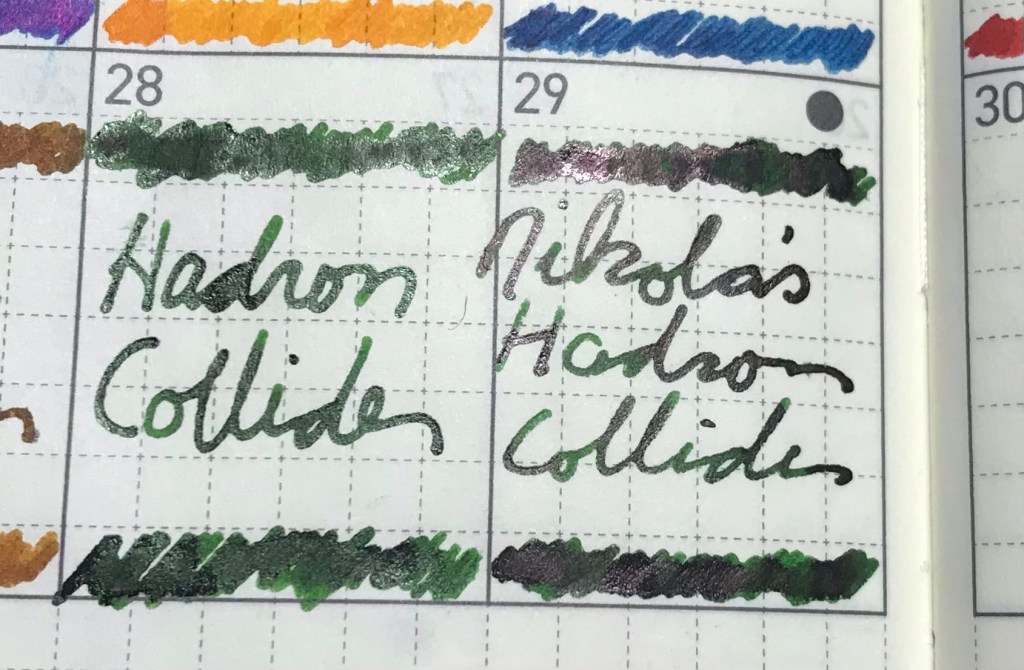 28
Hadron
Collider
29
Nikola's
Hadron
Collider
30